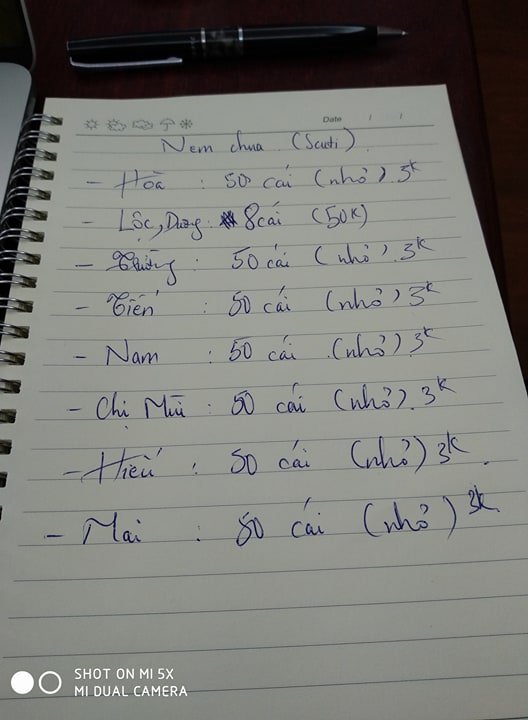 Date / /
Nem chua (Scuti).
- Hoà : 50 cái (nhỏ). 3k
- Lộc, Dung 8 cái (50K)
- : 50 cái (nhỏ). 3k
- Tiến : 50 cái (nhỏ) 3k
- Nam : 50 cái (nhỏ) 3k
- Chị Mùi : 50 cái (nhỏ). 3k
- Hiếu : 50 cái (nhỏ) 3k.
- Mai : 50 cái (nhỏ) 3k.
SHOT ON MI 5X
MI DUAL CAMERA